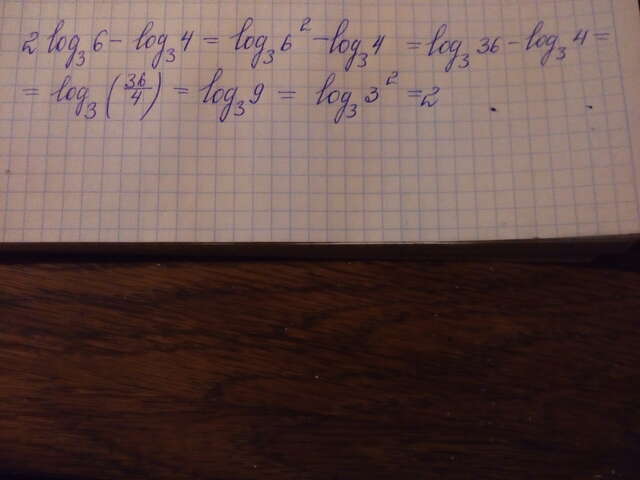 2 log₃6 - log₃4 = log₃6² - log₃4 = log₃36 - log₃4 =
= log₃(36/4) = log₃9 = log₃3² = 2